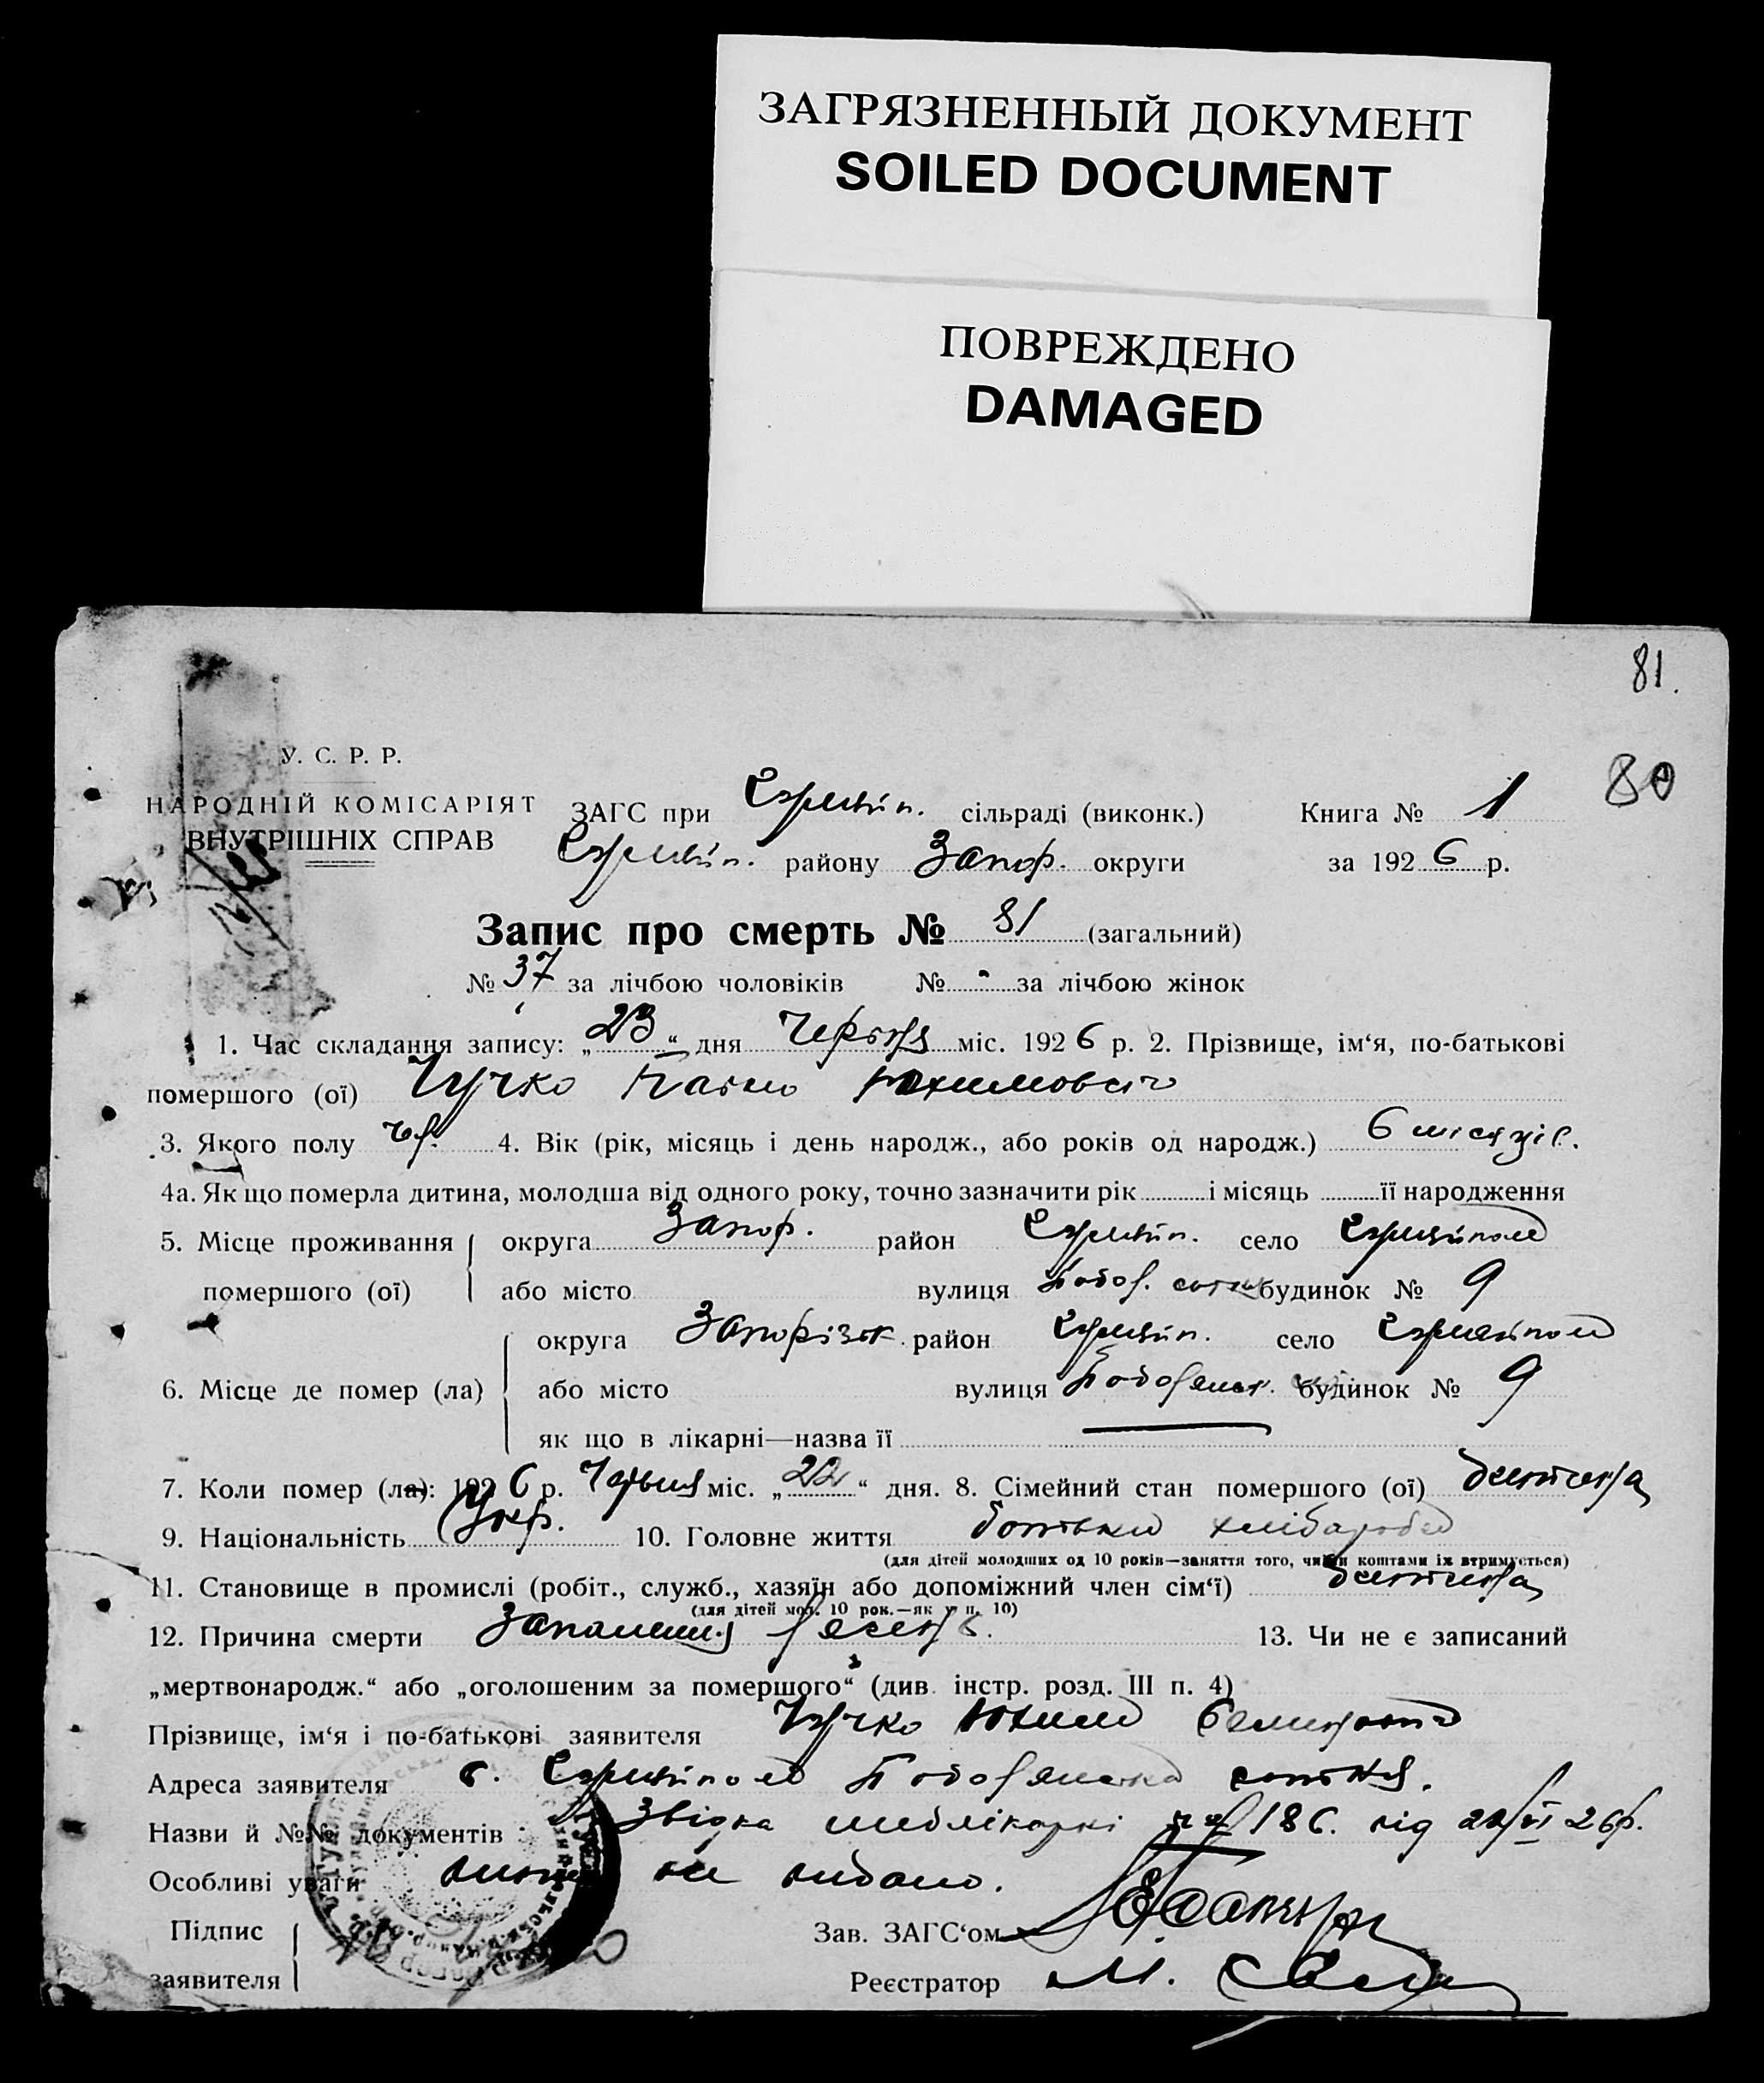 ЗАГРЯЗНЕННЫЙ ДОКУМЕНТ
SOILED DOCUMENT
ПОВРЕЖДЕНО
DAMAGED
81.
80
У. С. Р. Р.
НАРОДНІЙ КОМІСАРІЯТ
ВНУТРІШНІХ СПРАВ
ЗАГС при сільраді (виконк.) Книга № 1
району Запор. округи за 1926 р.
Запис про смерть № 81 (загальний)
№ 37 за лічбою чоловіків № - за лічбою жінок
1. Час складання запису: „23“ дня Червня міс. 1926 р. 2. Прізвище, ім‘я, по-батькові
помершого (ої) Чучко Павло Юхимович
3. Якого полу чол. 4. Вік (рік, місяць і день народж., або років од народж.) 6 місяців.
4а. Як що померла дитина, молодша від одного року, точно зазначити рік і місяць її народження
5. Місце проживання округа Запор. район село
помершого (ої) або місто вулиця будинок № 9
округа Запорізьк. район село
6. Місце де помер (ла) або місто вулиця будинок № 9
як що в лікарні—назва її
7. Коли помер (ла): 1926 р. Червня міс. „22“ дня. 8. Сімейний стан помершого (ої) дитина
9. Національність Укр. 10. Головне життя батько хлібороб
(для дітей молодших од 10 років—заняття того, чиїми коштами їх втримується)
11. Становище в промислі (робіт., служб., хазяїн або допоміжний член сім‘ї) дитина
(для дітей мол. 10 рок.—як у п. 10)
12. Причина смерти Запалення легенів. 13. Чи не є записаний
„мертвонародж.“ або „оголошеним за помершого“ (див. інстр. розд. III п. 4)
Прізвище, ім‘я і по-батькові заявителя Чучко Юхим
Адреса заявителя с. сотня.
Назви й №№ документів: Звідка медлікарні 186. від 22/VI 26р.
Особливі уваги не видано.
Підпис
заявителя
Зав. ЗАГС‘ом
Реєстратор М.